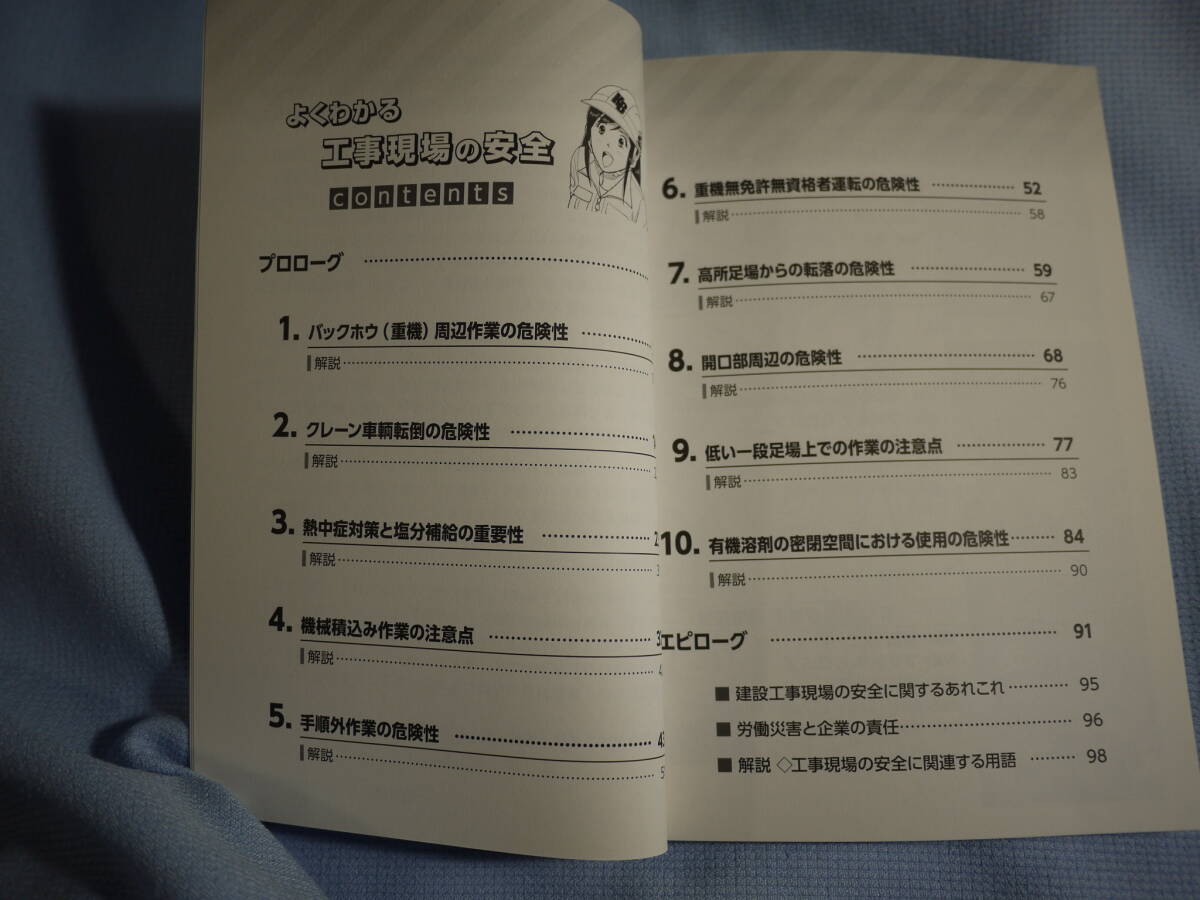 よくわかる
工事現場の安全
contents
プロローグ
1. バックホウ（重機）周辺作業の危険性
解説
2. クレーン車輌転倒の危険性
解説
3. 熱中症対策と塩分補給の重要性
解説
4. 機械積込み作業の注意点
解説
5. 手順外作業の危険性
解説
6. 重機無免許無資格者運転の危険性 52
解説 58
7. 高所足場からの転落の危険性 59
解説 67
8. 開口部周辺の危険性 68
解説 76
9. 低い一段足場上での作業の注意点 77
解説 83
10. 有機溶剤の密閉空間における使用の危険性 84
解説 90
エピローグ 91
■ 建設工事現場の安全に関するあれこれ 95
■ 労働災害と企業の責任 96
■ 解説 ◇工事現場の安全に関連する用語 98